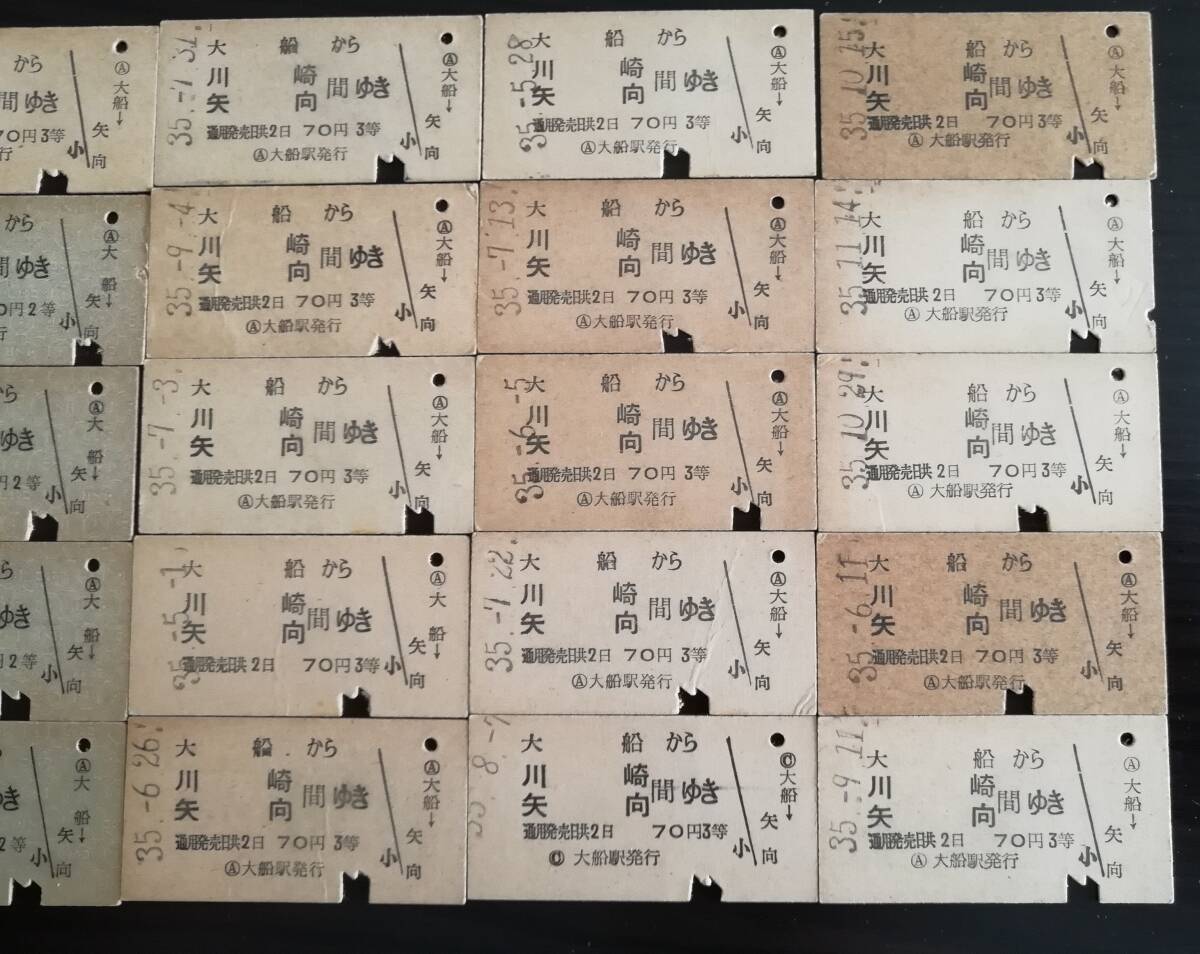 から
間ゆき
70円 3等 小 矢向
行
35.-7.31.
大船から
川崎 矢向 間ゆき
通用発売日共2日 70円 3等
Ⓐ大船駅発行
Ⓐ大船→
小 矢向
35.-5.28
大船から
川崎 矢向 間ゆき
通用発売日共2日 70円 3等
Ⓐ大船駅発行
Ⓐ大船→
小 矢向
35.10.15.
大船から
川崎 矢向 間ゆき
通用発売日共2日 70円 3等
Ⓐ大船駅発行
Ⓐ大船→
小 矢向
から
間ゆき
0円 2等
行
Ⓐ大船→
小 矢向
35.-9.-4
大船から
川崎 矢向 間ゆき
通用発売日共2日 70円 3等
Ⓐ大船駅発行
Ⓐ大船→
小 矢向
35.-7.13.
大船から
川崎 矢向 間ゆき
通用発売日共2日 70円 3等
Ⓐ大船駅発行
Ⓐ大船→
小 矢向
35.11.14
大船から
川崎 矢向 間ゆき
通用発売日共2日 70円 3等
Ⓐ大船駅発行
Ⓐ大船→
小 矢向
から
ゆき
円 2等
Ⓐ大船→
小 矢向
35.-7.-3.
大船から
川崎 矢向 間ゆき
通用発売日共2日 70円 3等
Ⓐ大船駅発行
Ⓐ大船→
小 矢向
35.-6.-5
大船から
川崎 矢向 間ゆき
通用発売日共2日 70円 3等
Ⓐ大船駅発行
Ⓐ大船→
小 矢向
35.10.29.
大船から
川崎 矢向 間ゆき
通用発売日共2日 70円 3等
Ⓐ大船駅発行
Ⓐ大船→
小 矢向
ら
ゆき
円 2等
Ⓐ大船→
小 矢向
35.-5.-1
大船から
川崎 矢向 間ゆき
通用発売日共2日 70円 3等
Ⓐ大船駅発行
Ⓐ大船→
小 矢向
35.-7.22.
大船から
川崎 矢向 間ゆき
通用発売日共2日 70円 3等
Ⓐ大船駅発行
Ⓐ大船→
小 矢向
35.-6.11
大船から
川崎 矢向 間ゆき
通用発売日共2日 70円 3等
Ⓐ大船駅発行
Ⓐ大船→
小 矢向
き
2等
Ⓐ大船→
小 矢向
35.-6.26.
大船から
川崎 矢向 間ゆき
通用発売日共2日 70円 3等
Ⓐ大船駅発行
Ⓐ大船→
小 矢向
35.8.-7
大船から
川崎 矢向 間ゆき
通用発売日共2日 70円 3等
Ⓒ大船駅発行
Ⓒ大船→
小 矢向
35.-9.11.
大船から
川崎 矢向 間ゆき
通用発売日共2日 70円 3等
Ⓐ大船駅発行
Ⓐ大船→
小 矢向